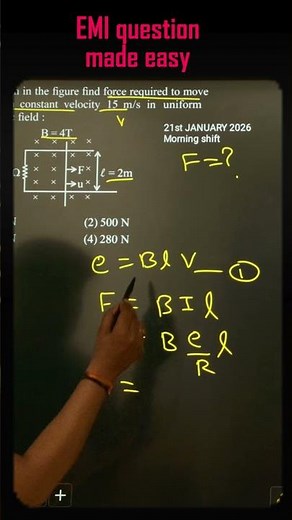 EMI question
made easy
in the figure find force required to move
constant velocity 15 m/s in uniform
field :
V
B = 4T
21st JANUARY 2026
Morning shift
F = ?
Ω
F
ℓ = 2m
u
(2) 500 N
(4) 280 N
e = B l V — ①
F = B I l
B e/R l
=
+